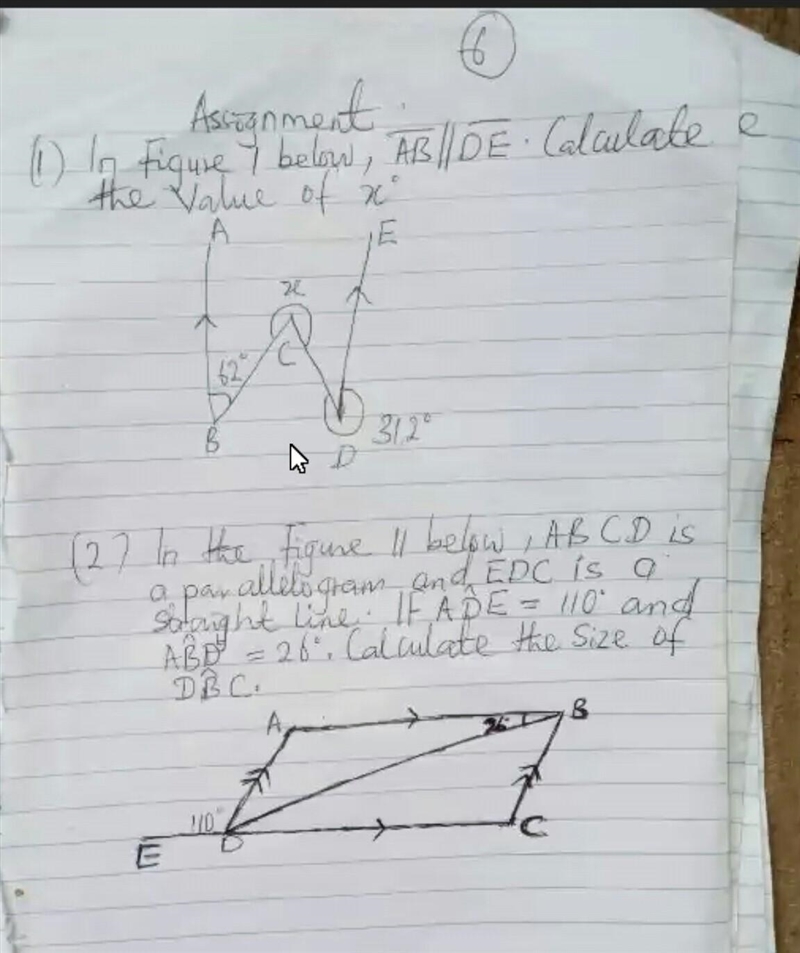 6
Assignment.
(1) In Figure 7 below, AB//DE. Calculate e
the Value of x°
A
E
x
62°
C
B
312°
D
(2) In the figure 11 below, ABCD is
a parallelogram and EDC is a
straight line. If AD̂E = 110° and
AB̂D = 26°. Calculate the Size of
DB̂C.
A
26
B
110°
D
C
E